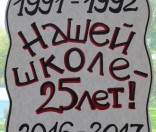 1991-1992
Нашей
школе-
25лет!
2016-2017